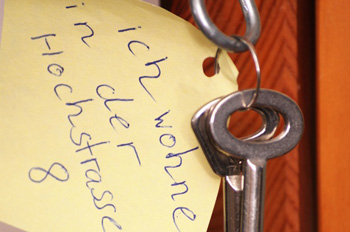 ich wohne
in der
Hochstrasse
8